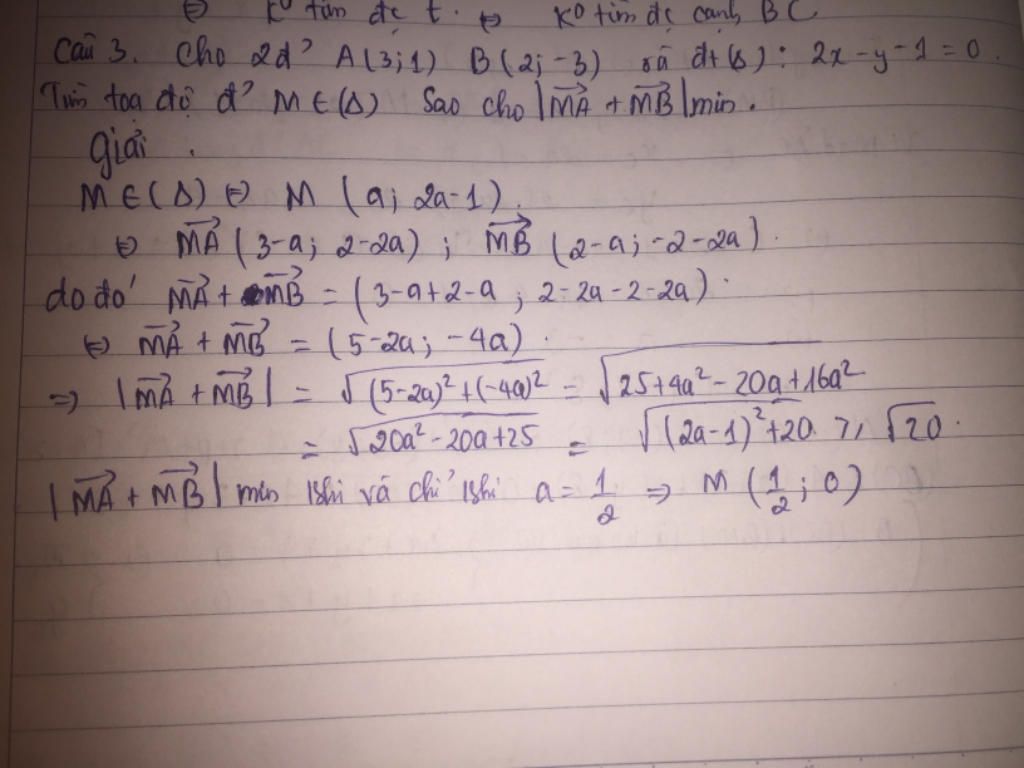 ⇔ K⁰ tìm đc t. ⇔ K⁰ tìm đc cạnh BC
Câu 3. Cho 2đ' A(3;1) B(2;-3) và đt(Δ): 2x-y-1=0.
Tìm tọa độ đ' M∈(Δ) Sao cho |MA→ + MB→|min.
Giải.
M∈(Δ) ⇔ M (a; 2a-1).
⇔ MA→ (3-a; 2-2a) ; MB→ (2-a; -2-2a).
do đó MA→ + MB→ = (3-a+2-a ; 2-2a-2-2a).
⇔ MA→ + MB→ = (5-2a; -4a).
⇒ |MA→ + MB→| = √((5-2a)²+(-4a)²) = √(25+4a²-20a+16a²)
= √(20a²-20a+25) = √((2a-1)²+20) ≥ √20.
|MA→ + MB→| min khi và chỉ khi a = 1/2 ⇒ M (1/2; 0)